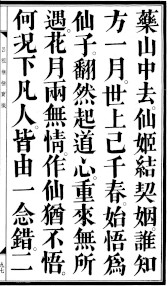 藥山中去仙姬結契姻誰知
方一月世上已千春始悟爲
仙子翻然起道心重來無所
遇花月兩無情作仙猶不悟
何况下凡人皆由一念錯二